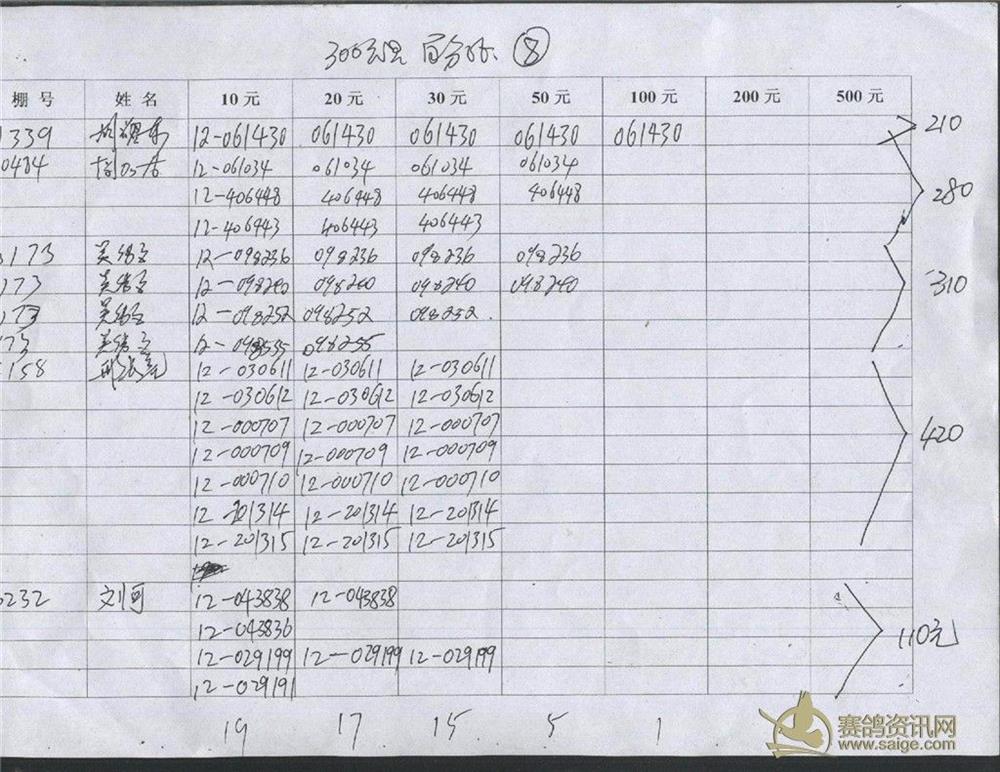 300公里 百分比 ⑧
棚号 姓名 10元 20元 30元 50元 100元 200元 500元
1339 12-061430 061430 061430 061430 061430 210
0484 12-061034 061034 061034 061034
12-406448 406448 406448 406448 280
12-406443 406443 406443
1173 12-098236 098236 098236 098236
173 12-098240 098240 098240 098240 310
173 12-098252 098252 098252.
173 098255
158 12-030611 12-030611 12-030611
12-030612 12-030612 12-030612
12-000707 12-000707 12-000707 420
12-000709 12-000709 12-000709
12-000710 12-000710 12-000710
12-201314 12-201314 12-201314
12-201315 12-201315 12-201315
0232 刘可 12-043838 12-043838
12-043836 110元
12-029199 12-029199 12-029199
12-029191
19 17 15 5 1
赛鸽资讯网
www.saige.com